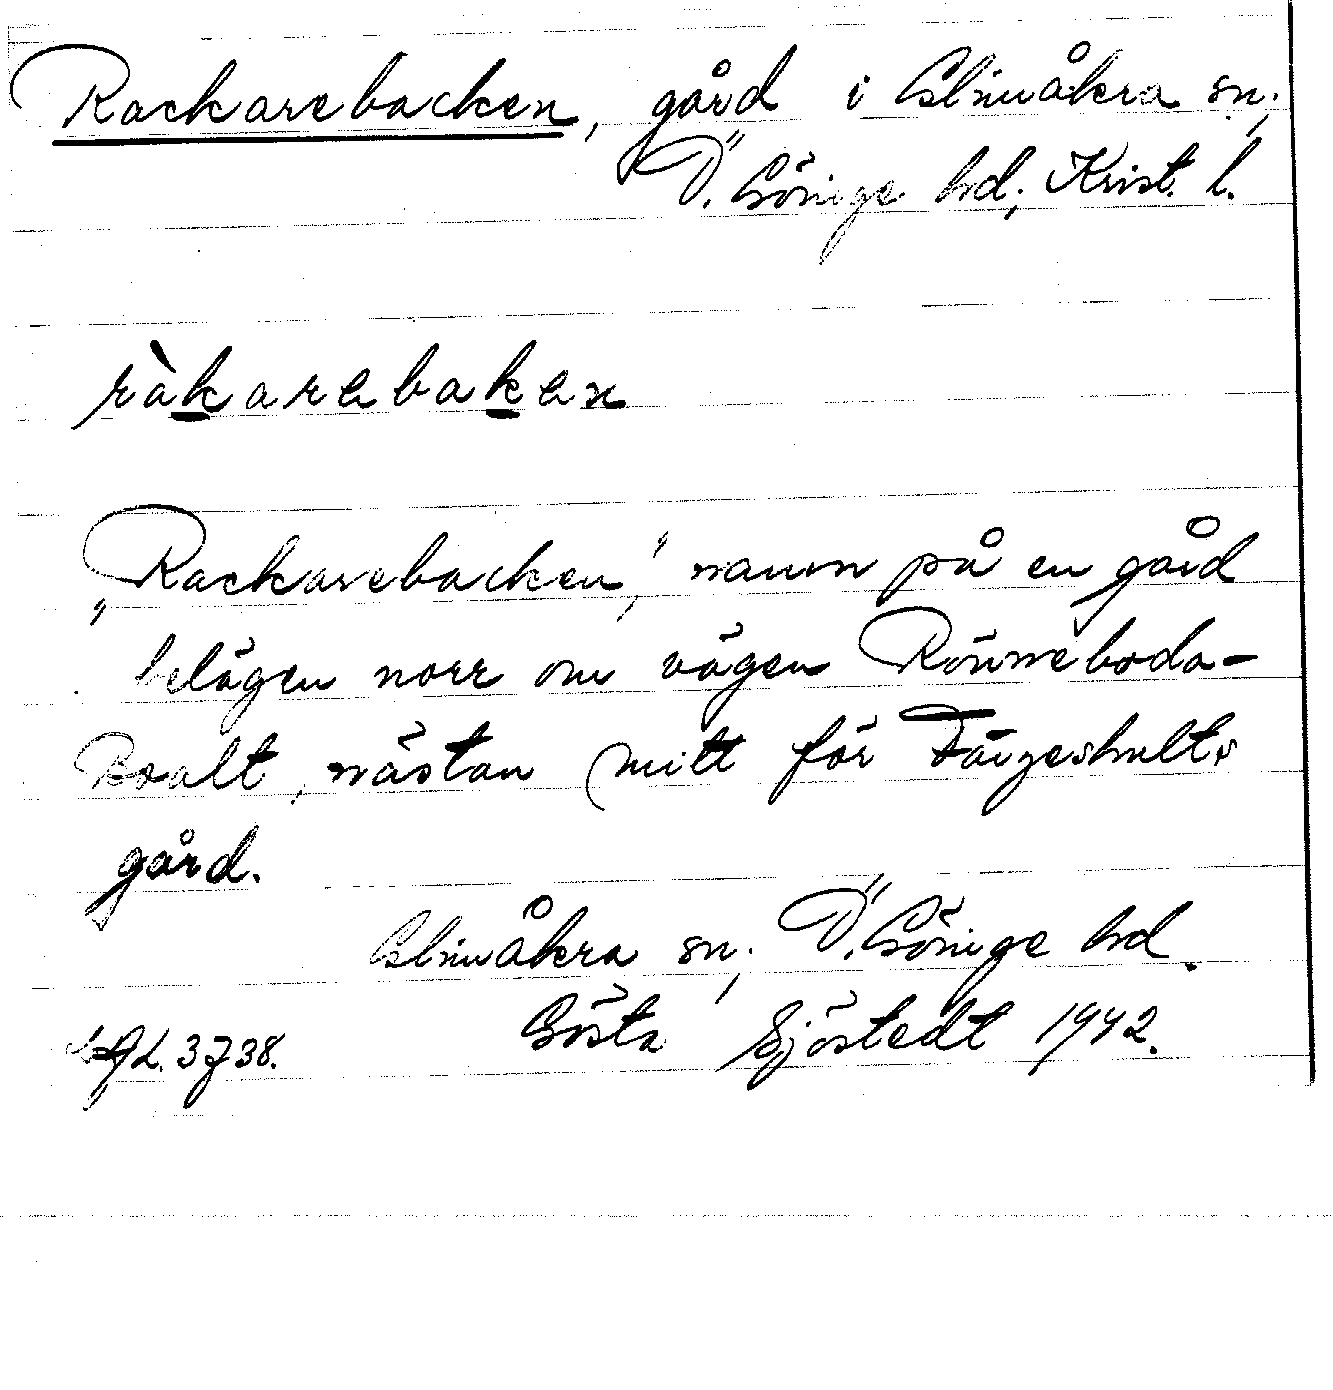 Rackarebacken, gård i Glimåkra sn,
Ö. Göinge hd, Krist. l.
ràkarebaken
"Rackarebacken", namn på en gård
belägen norr om vägen Rönneboda-
Boalt, nästan mitt för Färgeshults
gård.
Glimåkra sn, Ö. Göinge hd.
Gösta Sjöstedt 1942.
3738.